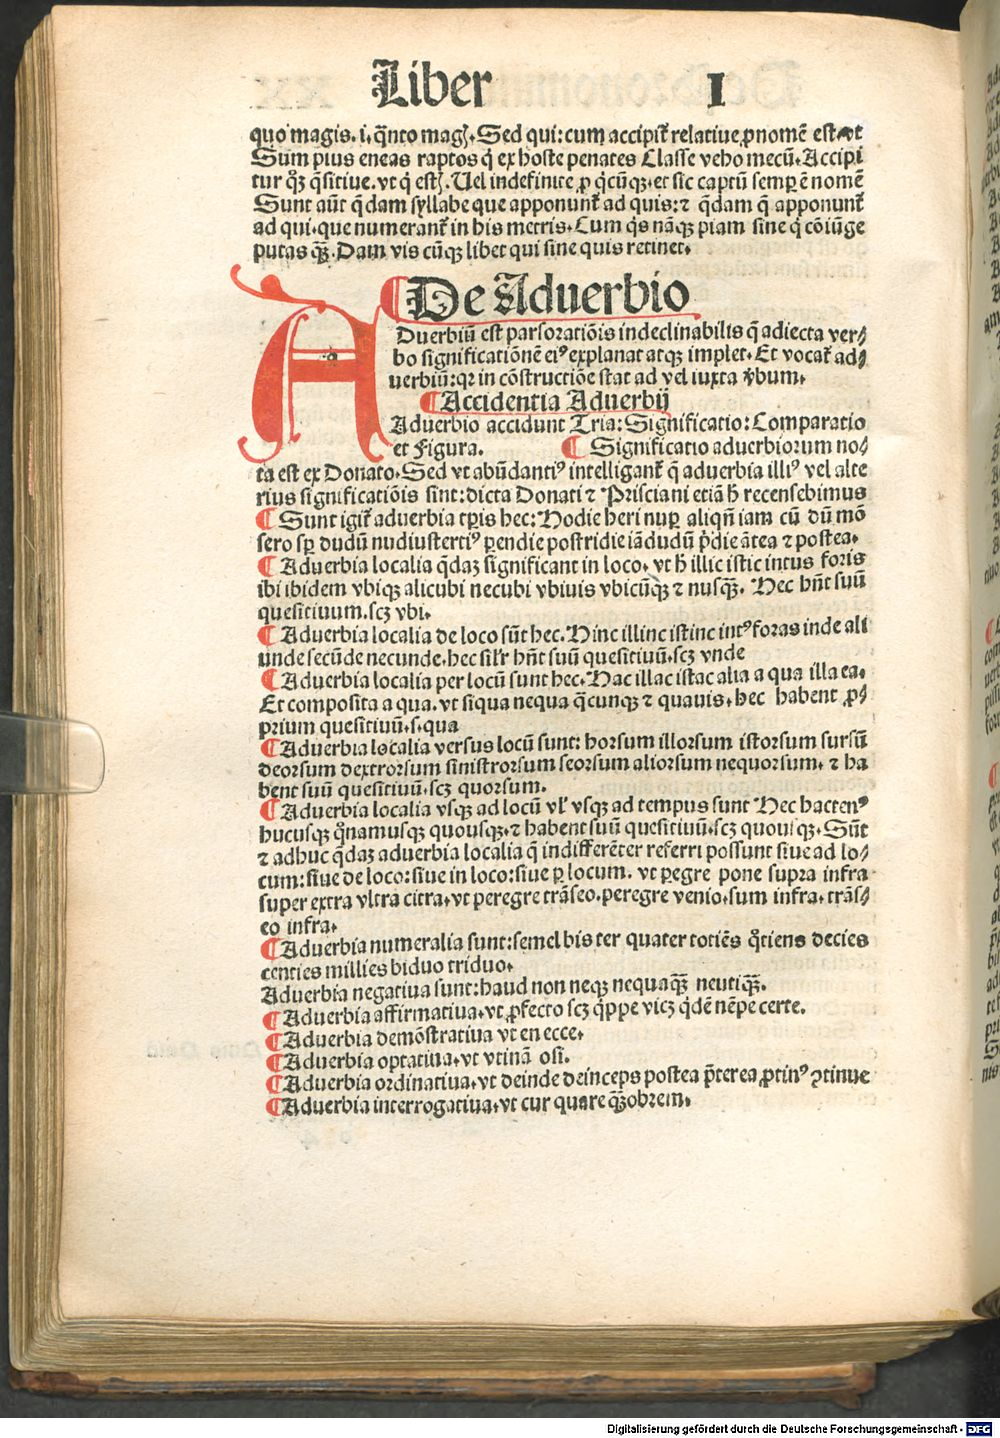 Liber I
quo magis. i. q̄nto magꝭ. Sed qui: cum accipit̄ relatiue ꝓnomē est. vt
Sum pius eneas raptos q̇ ex hoste penates Classe veho mecū. Accipi
tur qͦꝫ q̄sitiue. vt q̇ estꝭ. Uel indefinite ꝓ q̇cūqꝫ. et sic captū semꝑ ē nomē
Sunt aūt q̄dam syllabe que apponunt̄ ad quis: ⁊ q̄dam q̄ apponunt̄
ad qui. que numerant̄ in his metris. Cum q̇s nāqꝫ piam sine q̇ cōiūge
putas qꝫ̄. Dam vis cūqꝫ libet qui sine quis retinet.
¶ De Aduerbio
ADuerbiū est pars oratiōis indeclinabilis q̄ adiecta ver⸗
bo significationē eiꝰ explanat atqꝫ implet. Et vocat̄ ad⸗
uerbiū: qꝛ in cōstructiōe stat ad vel iuxta v̓bum.
¶ Accidentia Aduerbij
Aduerbio accidunt Tria: Significatio: Comparatio
et Figura. ¶ Significatio aduerbiorum no⸗
ta est ex Donato. Sed vt abūdantiꝰ intelligant̄ q̄ aduerbia illiꝰ vel alte
rius significatiōis sint: dicta Donati ⁊ Prisciani etiā h̄ recensebimus
¶ Sunt igit̄ aduerbia tꝑis hec: Hodie heri nuꝑ aliqn̄ iam cū dū mō
sero sꝑ dudū nudiustertiꝰ ꝑendie postridie iādudū p̓die ātea ⁊ postea.
¶ Aduerbia localia q̄daꝫ significant in loco. vt h̄ illic istic intus foris
ibi ibidem vbiqꝫ alicubi necubi vbiuis vbicūqꝫ ⁊ nusqꝫ̄. Hec hn̄t suū
quesitiuum. scꝫ vbi.
¶ Aduerbia localia de loco sūt hec. Hinc illinc istinc intꝰ foras inde ali
unde secūde necunde. hec sil̓r hn̄t suū quesitiuū. scꝫ vnde
¶ Aduerbia localia per locū sunt hec. Hac illac istac alia a qua illa ea.
Et composita a qua. vt siqua nequa q̄cunqꝫ ⁊ quauis. hec habent ꝓ⸗
prium quesitiuū. s. qua
¶ Aduerbia localia versus locū sunt: horsum illorsum istorsum sursū
deorsum dextrorsum sinistrorsum seorsum aliorsum nequorsum. ⁊ ha
bent suū quesitiuū. scꝫ quorsum.
¶ Aduerbia localia vsqꝫ ad locū vl̓ vsqꝫ ad tempus sunt Hec hactenꝰ
hucusqꝫ qͦnamusqꝫ quousqꝫ. ⁊ habent suū quesitiuū. scꝫ quousqꝫ. Sūt
⁊ adhuc q̄daꝫ aduerbia localia q̄ indifferēter referri possunt siue ad lo⸗
cum: siue de loco: siue in loco: siue ꝑ locum. vt ꝑegre pone supra infra
super extra vltra citra. vt peregre trāseo. peregre venio. sum infra. trās⸗
eo infra.
¶ Aduerbia numeralia sunt: semel bis ter quater totiēs qͦtiens decies
centies millies biduo triduo.
Aduerbia negatiua sunt: haud non neqꝫ nequaqꝫ̄ neutiqꝫ̄.
¶ Aduerbia affirmatiua. vt ꝓfecto scꝫ q̇ppe vicꝫ q̇dē nēpe certe.
¶ Aduerbia demōstratiua vt en ecce.
¶ Aduerbia optatiua. vt vtinā osi.
¶ Aduerbia ordinatiua. vt deinde deinceps postea p̄terea ꝓtinꝰ ꝯtinue
¶ Aduerbia interrogatiua. vt cur quare qꝫ̄obrem.
Digitalisierung gefördert durch die Deutsche Forschungsgemeinschaft - DFG